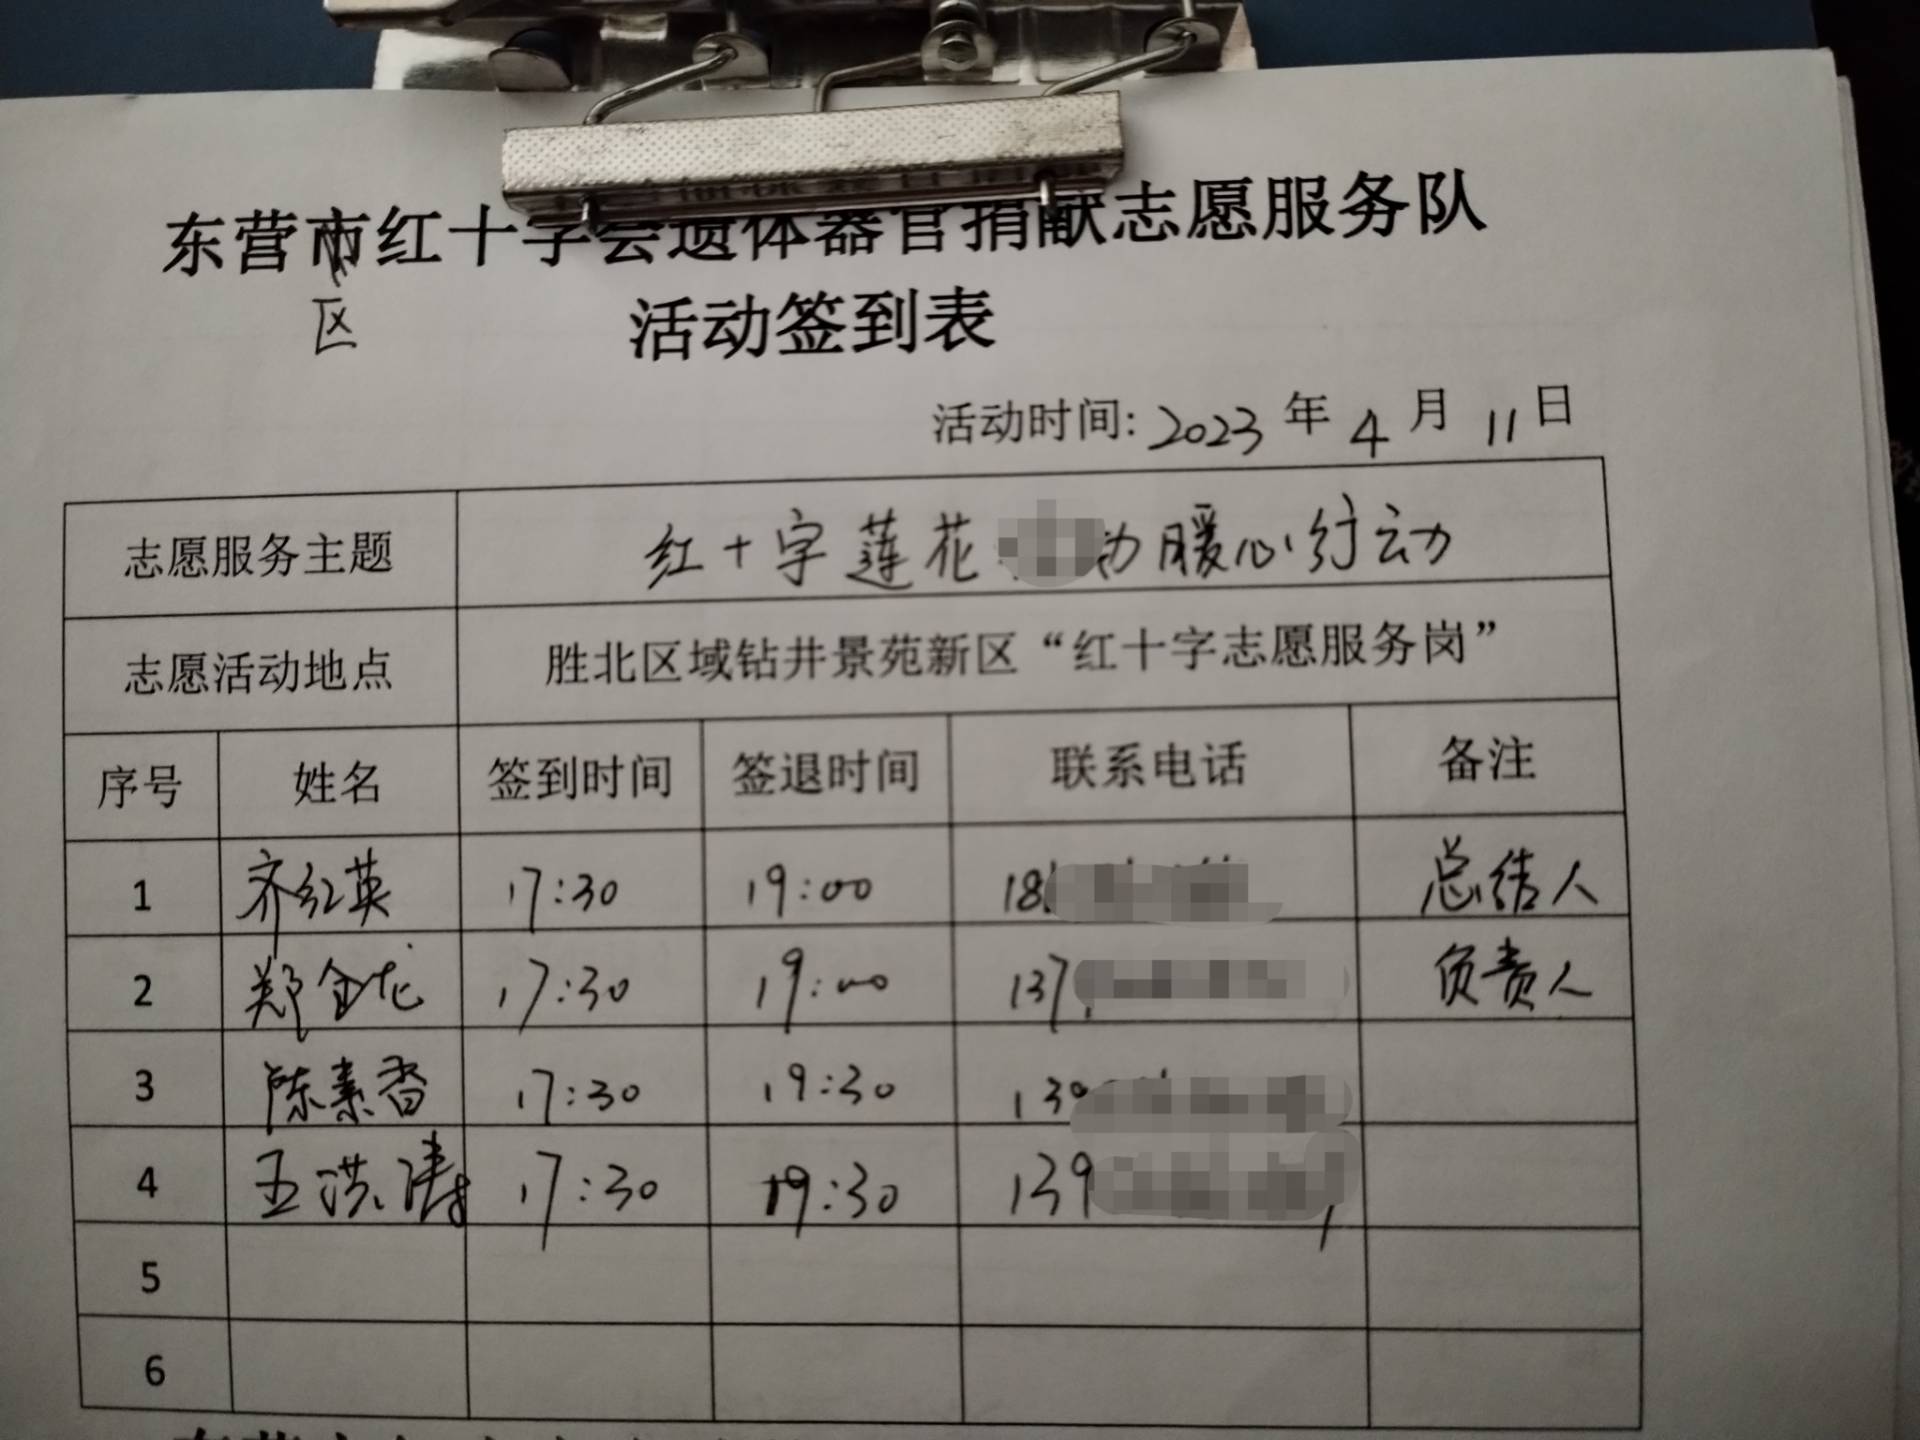 东营市红十字会遗体器官捐献志愿服务队
区
活动签到表
活动时间: 2023 年 4 月 11 日
志愿服务主题 红十字莲花 动暖心行动
志愿活动地点 胜北区域钻井景苑新区“红十字志愿服务岗”
序号 姓名 签到时间 签退时间 联系电话 备注
1 齐红英 17:30 19:00 18 总结人
2 郑金龙 17:30 19:00 137 负责人
3 陈素香 17:30 19:30 139
4 王洪涛 17:30 19:30 139
5
6